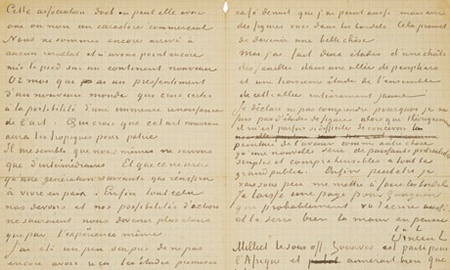 Cette association doit ou peut elle avoir
oui ou non un caractère commercial
Nous ne sommes encore arrivé à
aucun résultat et n'avons point encore
mis le pied sur un continent nouveau
Or moi qui ai un présentiment
d'un nouveau monde que crois certes
à la possibilité d'une immense renaissance
de l'art. Qui crois que cet art nouveau
aura les tropiques pour patrie.
Il me semble que nous mêmes ne servons
que d'intermédiaires. Et que ce ne sera
qu'une génération suivante qui réussira
à vivre en paix. Enfin tout cela
nos devoirs et nos possibilités d'action
ne sauraient nous devenir plus clairs
que par l'expérience même.
J'ai été un peu surpris de ne pas
encore avoir reçu les études promises
café
devant que j'ai peint aussi
des figures
de devenir une belle chose
Moi j'ai fait deux études d'une chûte
des feuilles dans une allée de peupliers
et une troisième étude de l'ensemble
de cette allée entièrement jaune.
Je déclare ne pas comprendre pourquoi je ne
fais pas d'études de figure alors que théoriquement
il m'est parfois si difficile de concevoir
peinture de l'avenir comme autre chose
qu'une nouvelle série de puissants portraitistes
simples et compréhensibles à tout le
grand public. Enfin peut être je
vais sous peu me mettre à faire les bordels
Je laisse une page pour Gauguin
qui probablement va t'écrire aussi
et te serre bien la main en pensée
t. à t.
Vincent
Milliet le sous off. Zouaves est parti pour
l'Afrique et aimerait bien que